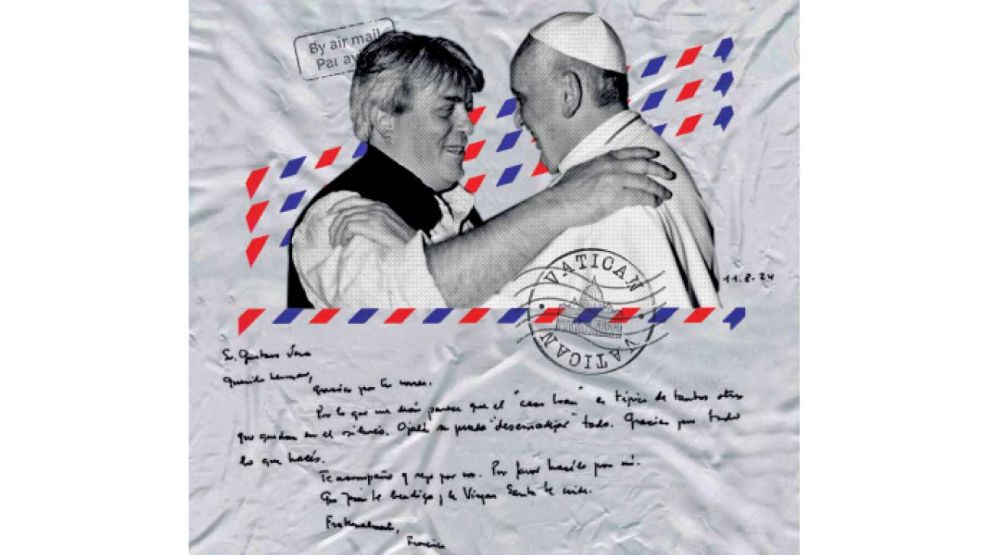 By air mail
Par av
VATICAN
VATICAN
11.8.24
Sr. Gustavo Vera
Querido hermano,
gracias por tu correo.
Por lo que me decís parece que el "caso Loan" es típico de tantos otros
que quedan en el silencio. Ojalá se pueda "desenmadejar" todo. Gracias por todo
lo que hacés.
Te acompaño y rezo por vos. Por favor hacélo por mí.
Que Jesús te bendiga y la Virgen Santa te cuide.
Fraternalmente,
Francisco